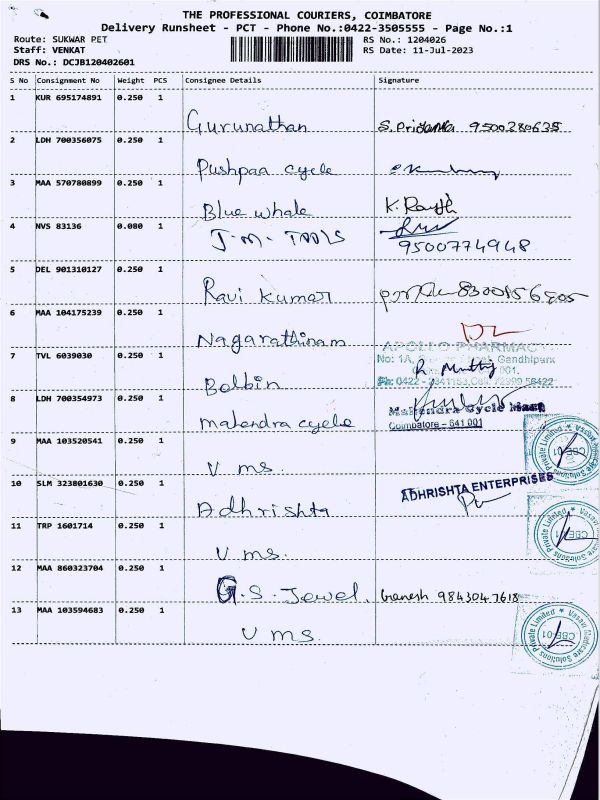 THE PROFESSIONAL COURIERS, COIMBATORE
Delivery Runsheet - PCT - Phone No.:0422-3505555 - Page No.:1
Route: SUKWAR PET RS No.: 1204026
Staff: VENKAT RS Date: 11-Jul-2023
DRS No.: DCJB120402601
S No Consignment No Weight PCS Consignee Details Signature
1 KUR 695174891 0.250 1
Gurunathan S. Priyanka 9500280635
2 LDH 700356075 0.250 1
Pushpaa cycle
3 MAA 570780899 0.250 1
Blue whale K.
4 NVS 83136 0.080 1
J.M. TOOLS
9500774948
5 DEL 901310127 0.250 1
Ravi Kumar
6 MAA 104175239 0.250 1
Nagarathinam
APOLLO PHARMACY
No: 1A, Gandhipark
7 TVL 6039030 0.250 1
Bolbin R. Muthu
8 LDH 700354973 0.250 1
Mahendra Cycle Mart
mahendra cycle Coimbatore - 641 001
9 MAA 103520541 0.250 1
V ms.
10 SLM 323801630 0.250 1
ADHRISHTA ENTERPRISES
Adhrishta
11 TRP 1601714 0.250 1
V ms.
12 MAA 860323704 0.250 1
G.S. Jewel. Ganesh 9843047618
13 MAA 103594683 0.250 1
V ms.
Private Limited ★ Vasavi Medicare Solutions
CBE-01